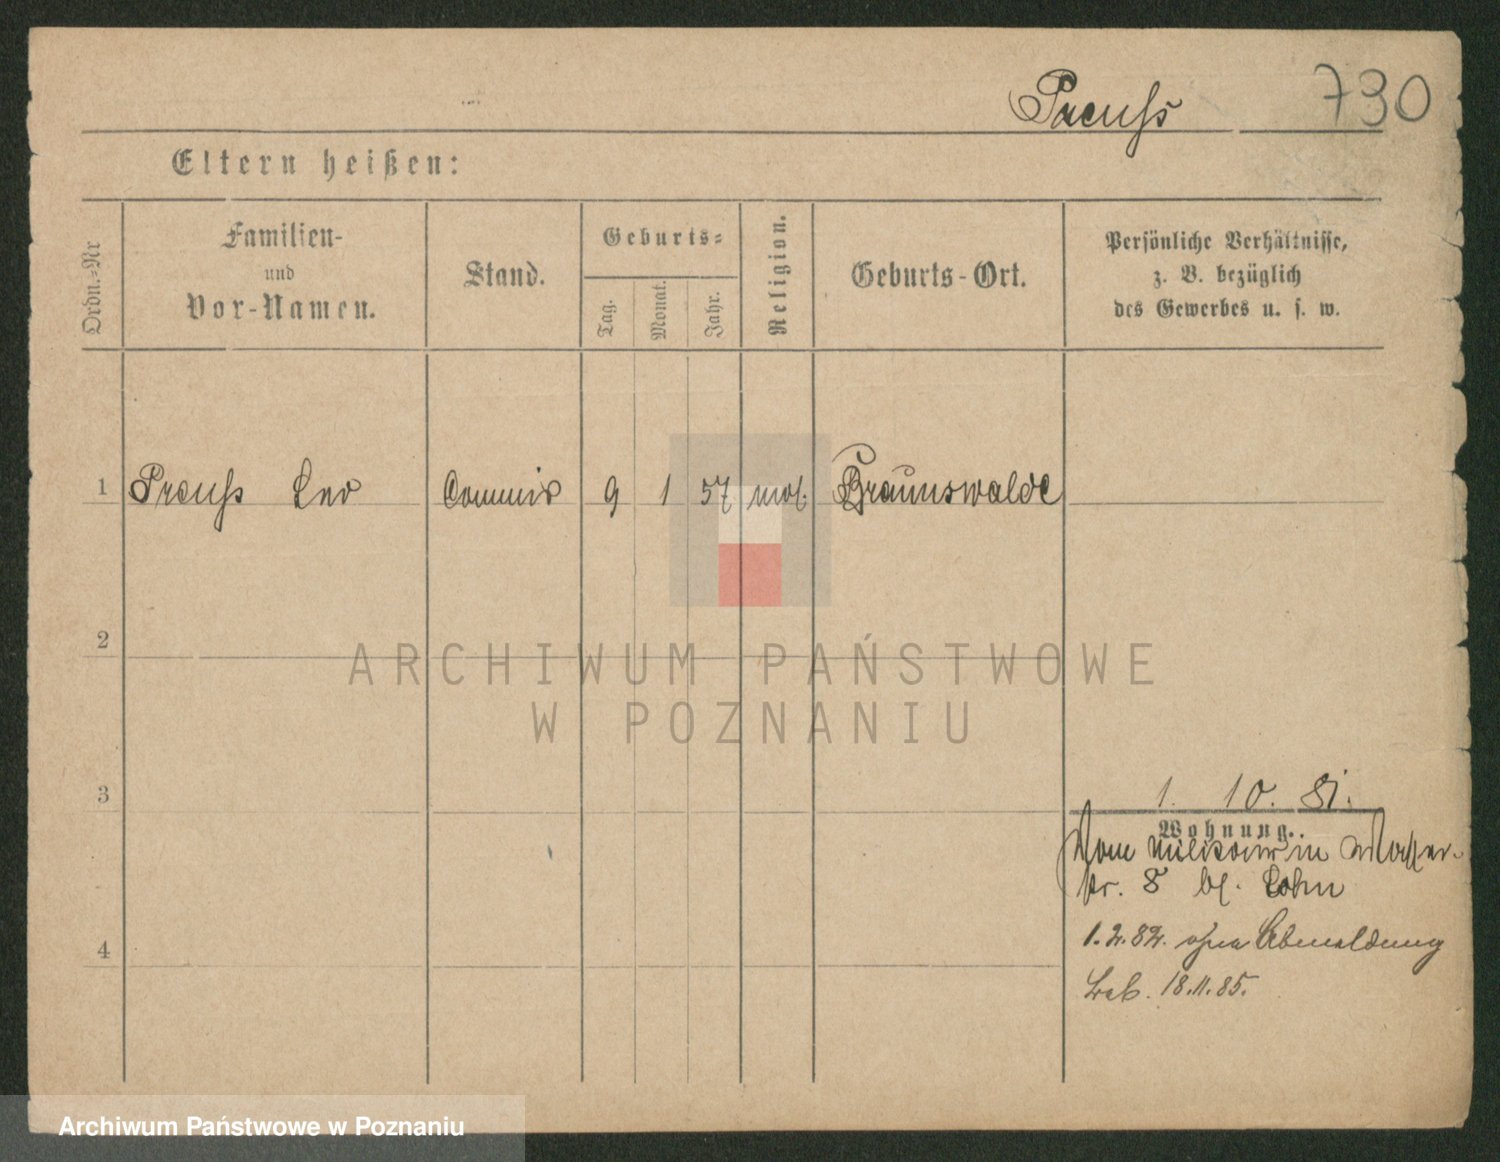 Preuß 730
Eltern heißen:
Ordn.-Nr
Familien-
und
Vor-Namen.
Stand.
Geburts-
Tag.
Monat.
Jahr.
Religion.
Geburts-Ort.
Persönliche Verhältnisse,
z. B. bezüglich
des Gewerbes u. s. w.
1 Preuß Leo Commis 9 1 57 mos. Braunswalde
2
ARCHIWUM PAŃSTWOWE
W POZNANIU
3
1. 10. 81.
Wohnung.
Vom Militair in Wasser-
str. 8 bei Cohn
4
1.2.82. ohne Abmeldung
18.11.85.
Archiwum Państwowe w Poznaniu